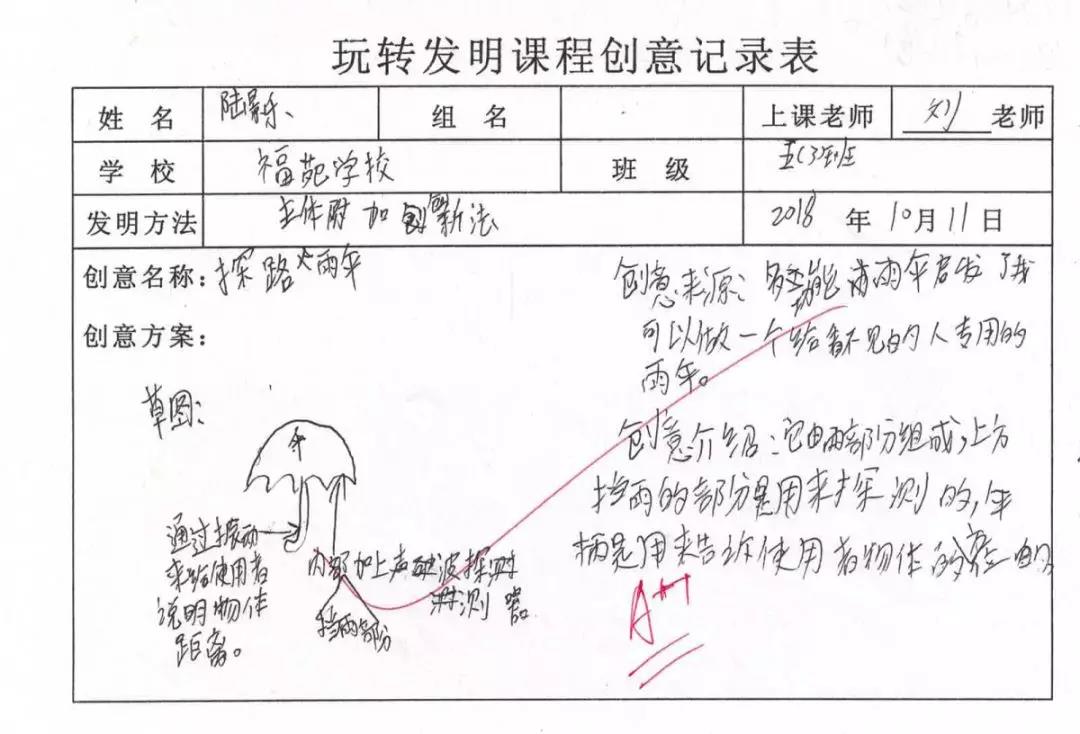 玩转发明课程创意记录表
姓 名 陆 组 名 上课老师 刘 老师
学 校 福苑学校 班 级 五(3)班
发明方法 主体附加创新法 2018 年 10月 11日
创意名称：探路雨伞
创意方案：
创意来源：多功能雨伞启发了我
可以做一个给看不见的人专用的
雨伞。
草图：
创意介绍：它由两部分组成，上方
挡雨的部分是用来探测的，伞
柄是用来告诉使用者物体的
通过振动
来给使用者
说明物体
距离。
内部加上声波探
测器
挡雨部分
A++